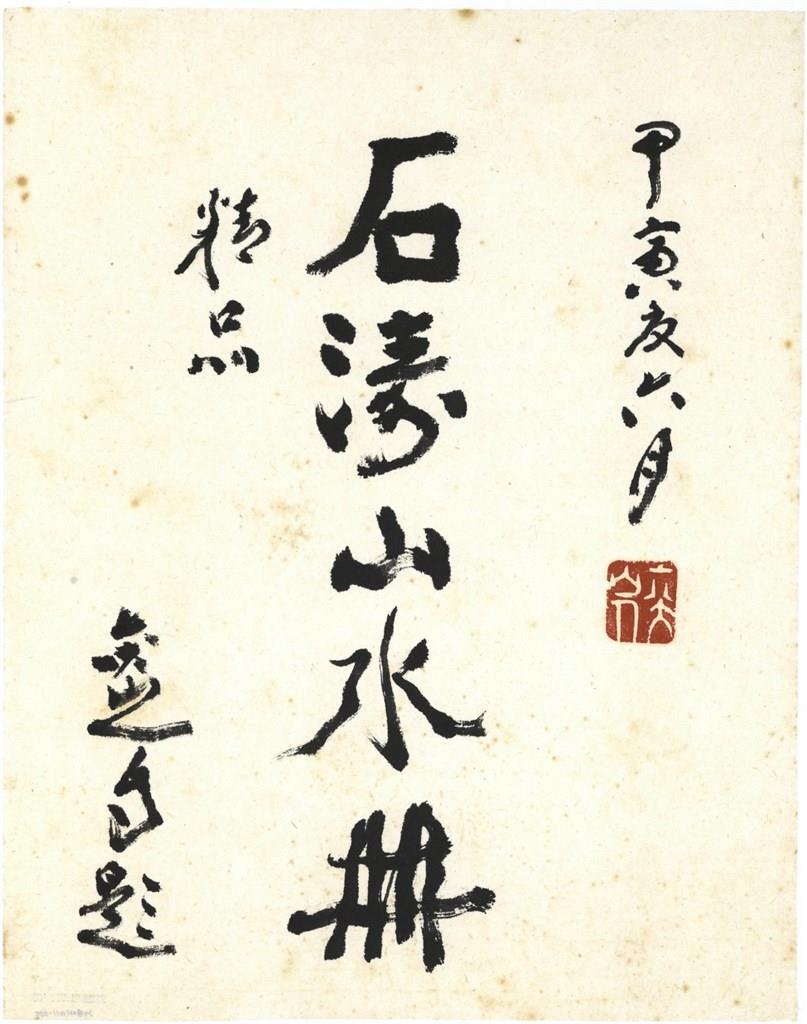 甲寅夏六月
石濤山水冊
精品
題